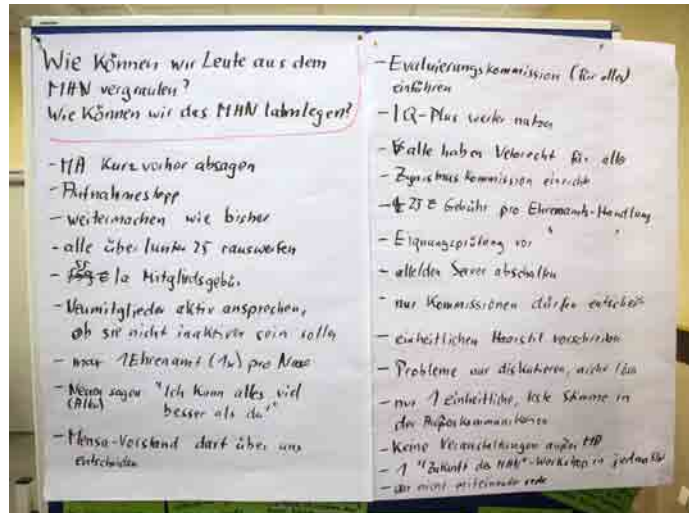 Wie Können wir Leute aus dem
MHN vergraulen?
Wie Können wir das MHN lahmlegen?
- MA Kurz vorher absagen
- Aufnahmestopp
- weitermachen wie bisher
- alle über/unter 25 rauswerfen
- 55 €/a Mitgliedsgebür
- Neumitglieder aktiv ansprechen,
ob sie nicht inaktiver sein sollen
- max 1 Ehrenamt (1x) pro Nase
- Neuen sagen "Ich kann alles viel
(Alte) besser als du"
- Mensa-Vorstand darf über uns
entscheiden
- Evaluierungskommission (für alles)
einführen
- IQ-Plus weiter nutzen
- alle haben Vetorecht für alles
- Zynismus Kommission einrichten
- 25 € Gebühr pro Ehrenamts-Handlung
- Eignungsprüfung vor " "
- alle/den Server abschalten
- nur Kommissionen dürfen entscheiden
- einheitlichen Haarstil vorschreiben
- Probleme nur diskutieren, nicht lösen
- nur 1 einheitliche, Stimme in
der Außenkommunikation
- Keine Veranstaltungen außer MD
- 1 "Zukunft des MHN"-Workshop in jedem
- nicht miteinander reden